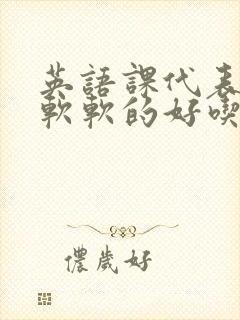 英語課代表
軟軟的好喫
儂歲好